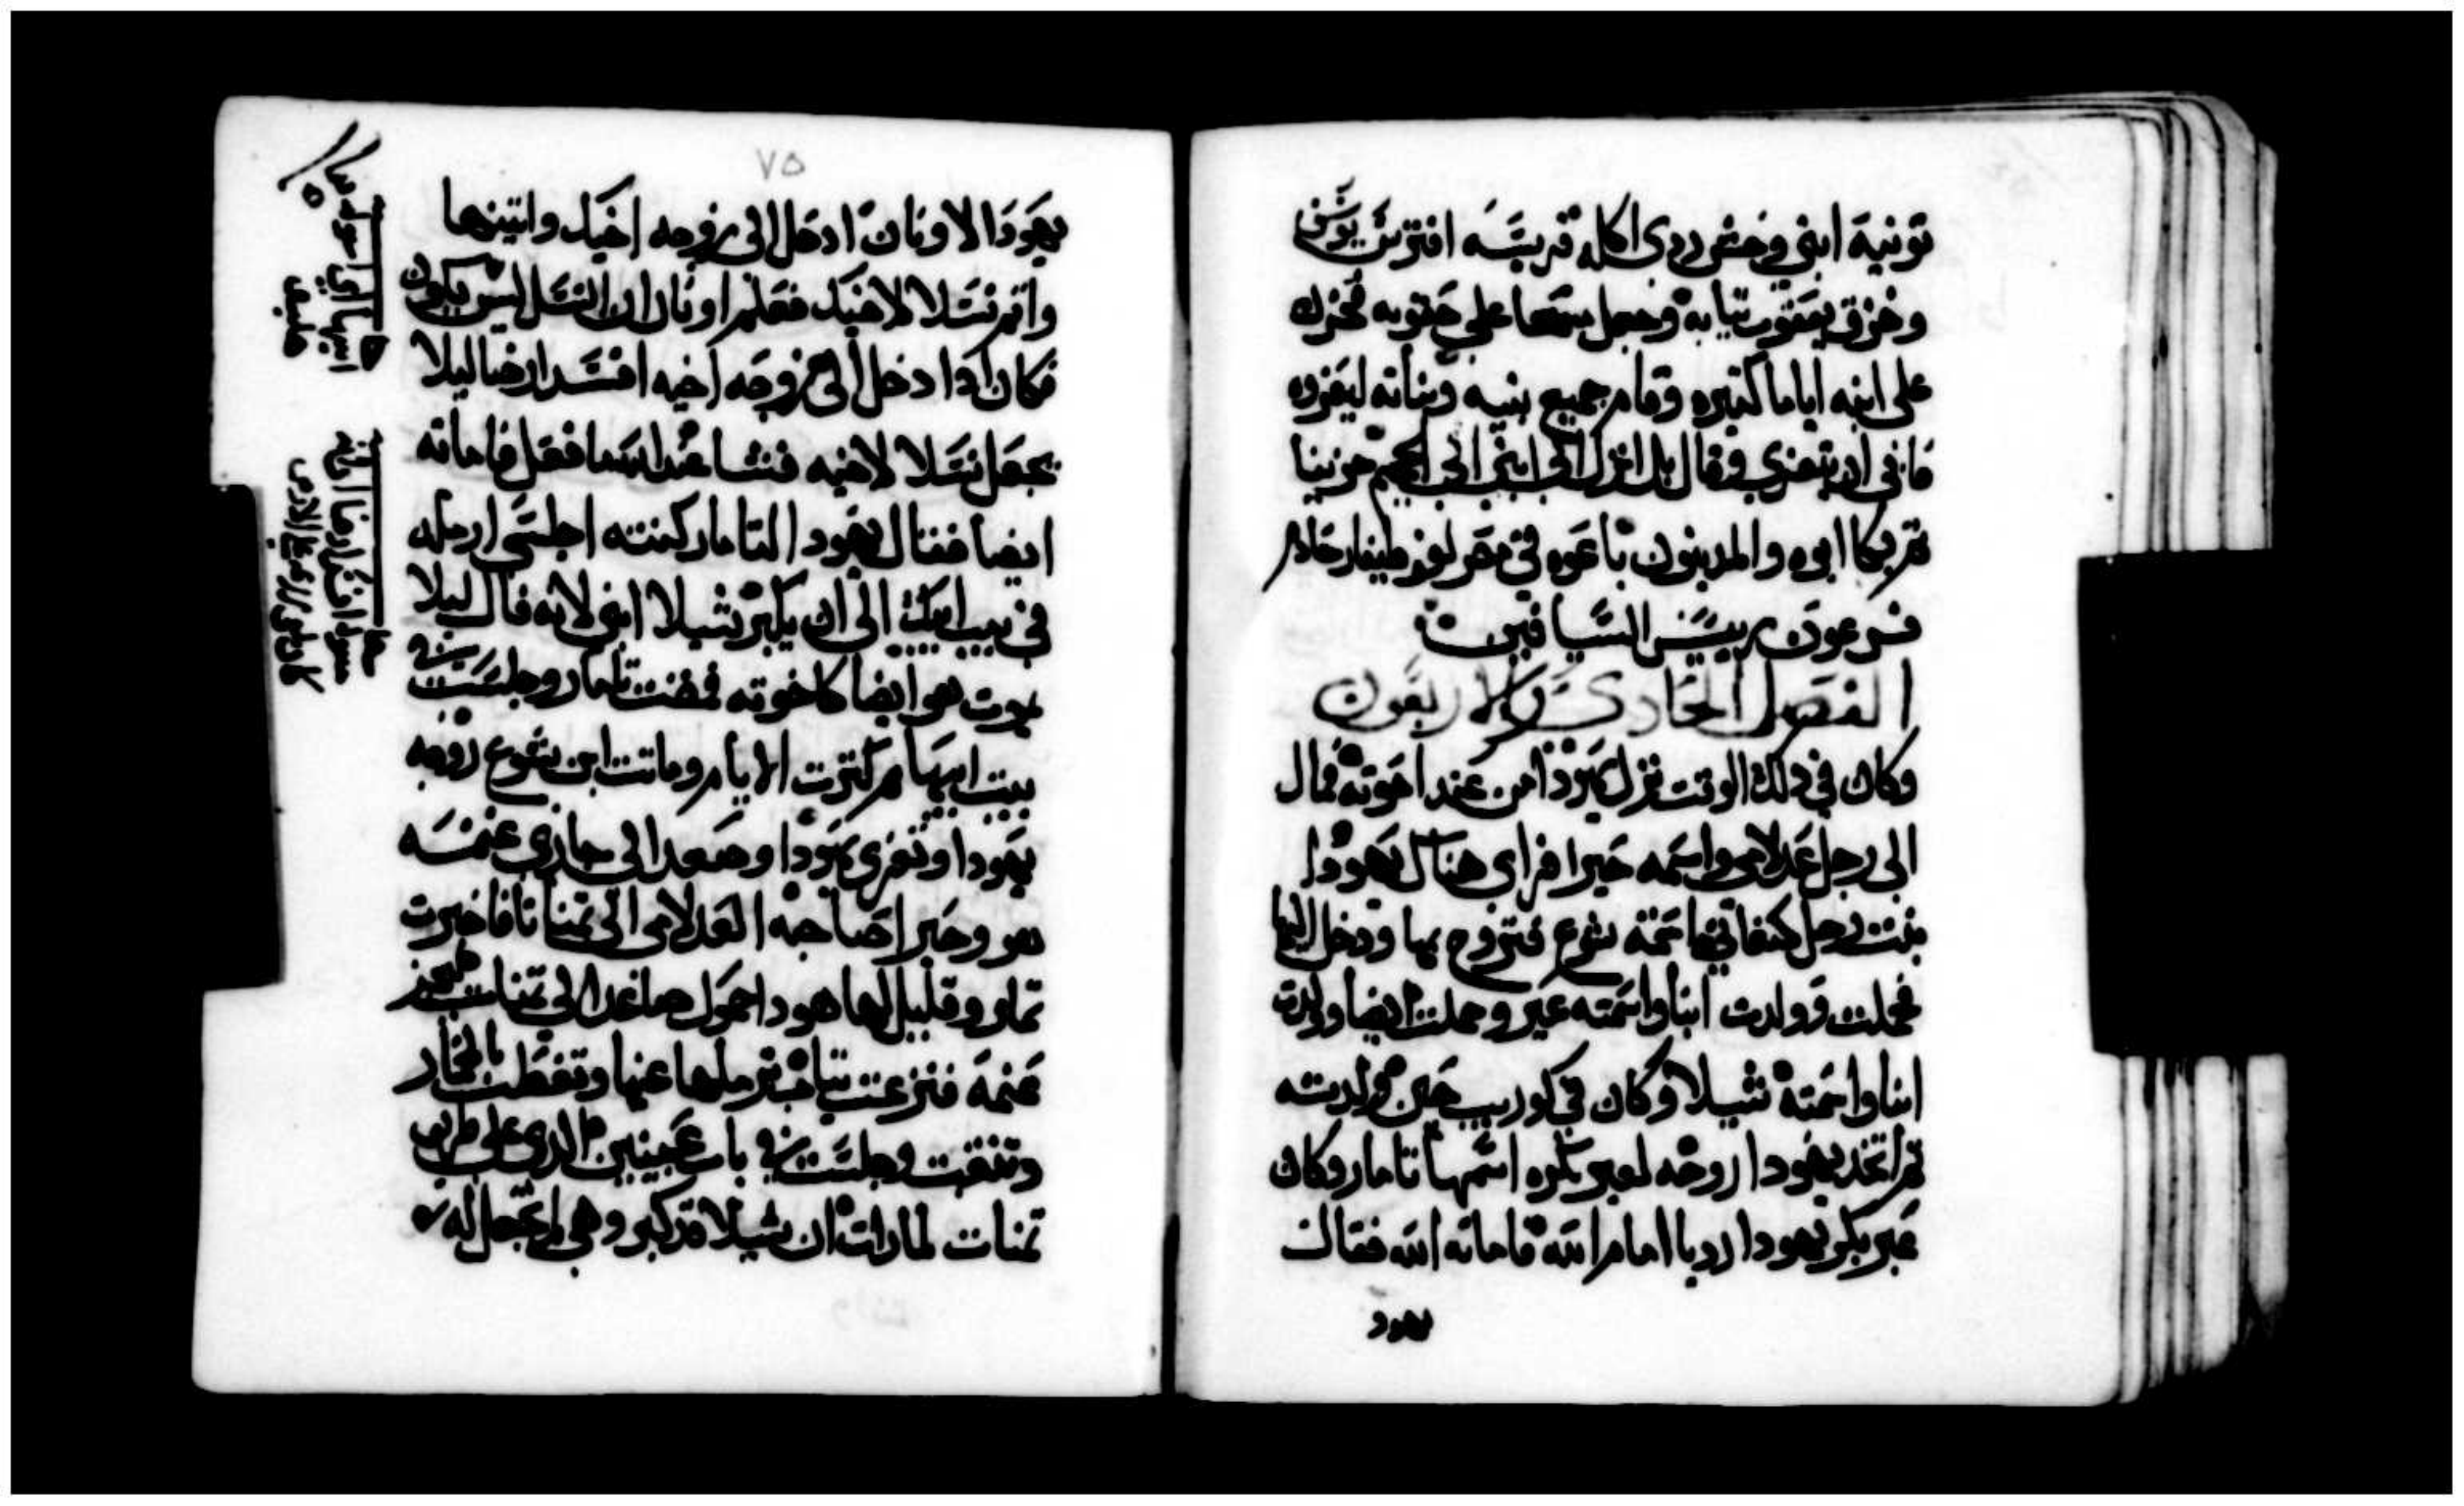 تونية ابني وحش ردى اكله قريسه افترس يوسف
وخزق يعقوب تيابه وجعل مسحا على حقويه محزن
على ابنه اياما كتيره وقام جميع بنيه وبناته ليعزوه
فابى ان يتعزى وقال بل انزل الى ابنى الى الجحيم حزينا
تم بكا ابوه والمدينون باعوه في مصر لفوطيفار خادم
فرعون رييس السيافين
الفصل الحادي والاربعون
وكان في دلك الوقت نزل يهودا من عند اخوته فمال
الى رجل عدلامى واسمه حيرا فراى هناك يهودا
بنت رجل كنعاني اسمه شوع فتزوج بها ودخل اليها
فحملت وولدت ابنا واسمته عير وحملت ايضا وولدت
ابنا واسمته شيلا وكان في كوربيب حين ولدته
تم اتخد يهودا زوجه لعير بكره اسمها تامار وكان
عير بكر يهودا رديا امام الله فاماته الله فقال
يهود
٧٥
يهودا لاونان ادخل الى زوجه اخيك واتينها
واقم نسلا لاخيك فعلم اونان ان النسل ليس يكون
فكان ادا دخل الى زوجه اخيه افسد ارضا ليلا
يجعل نسلا لاخيه فنشا عند الله ما فعل فاماته
ايضا فقال يهودا لتامار كنته اجلسي ارمله
في بيت ابيك الى ان يكبر شيلا ابني لانه قال ليلا
يموت هو ايضا كاخوته فمضت تامار وجلست في
بيت ابيها تم كترت الايام وماتت ابن شوع زوجه
يهودا وتعزى يهودا وصعد الى جازي غنمه
هو وحيرا صاحبه العدلامى الى تمنات فاخبرت
تمار وقليل لها هودا حموك صاعد الى تمنات يجز
غنمه فنزعت تياب ترملها عنها وتغطت بالخمار
وتنقبت وجلست في باب عينين الدي على طريق
تمنات لما رات ان شيلا قد كبر وهي لم تجعل له